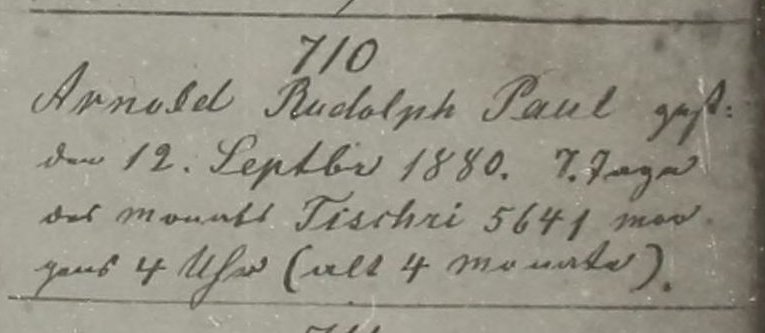 710
Arnold Rudolph Paul gest:
den 12. Septbr 1880. 7. Tage
des Monats Tischri 5641 mor
gens 4 Uhr (alt 4 Monate).